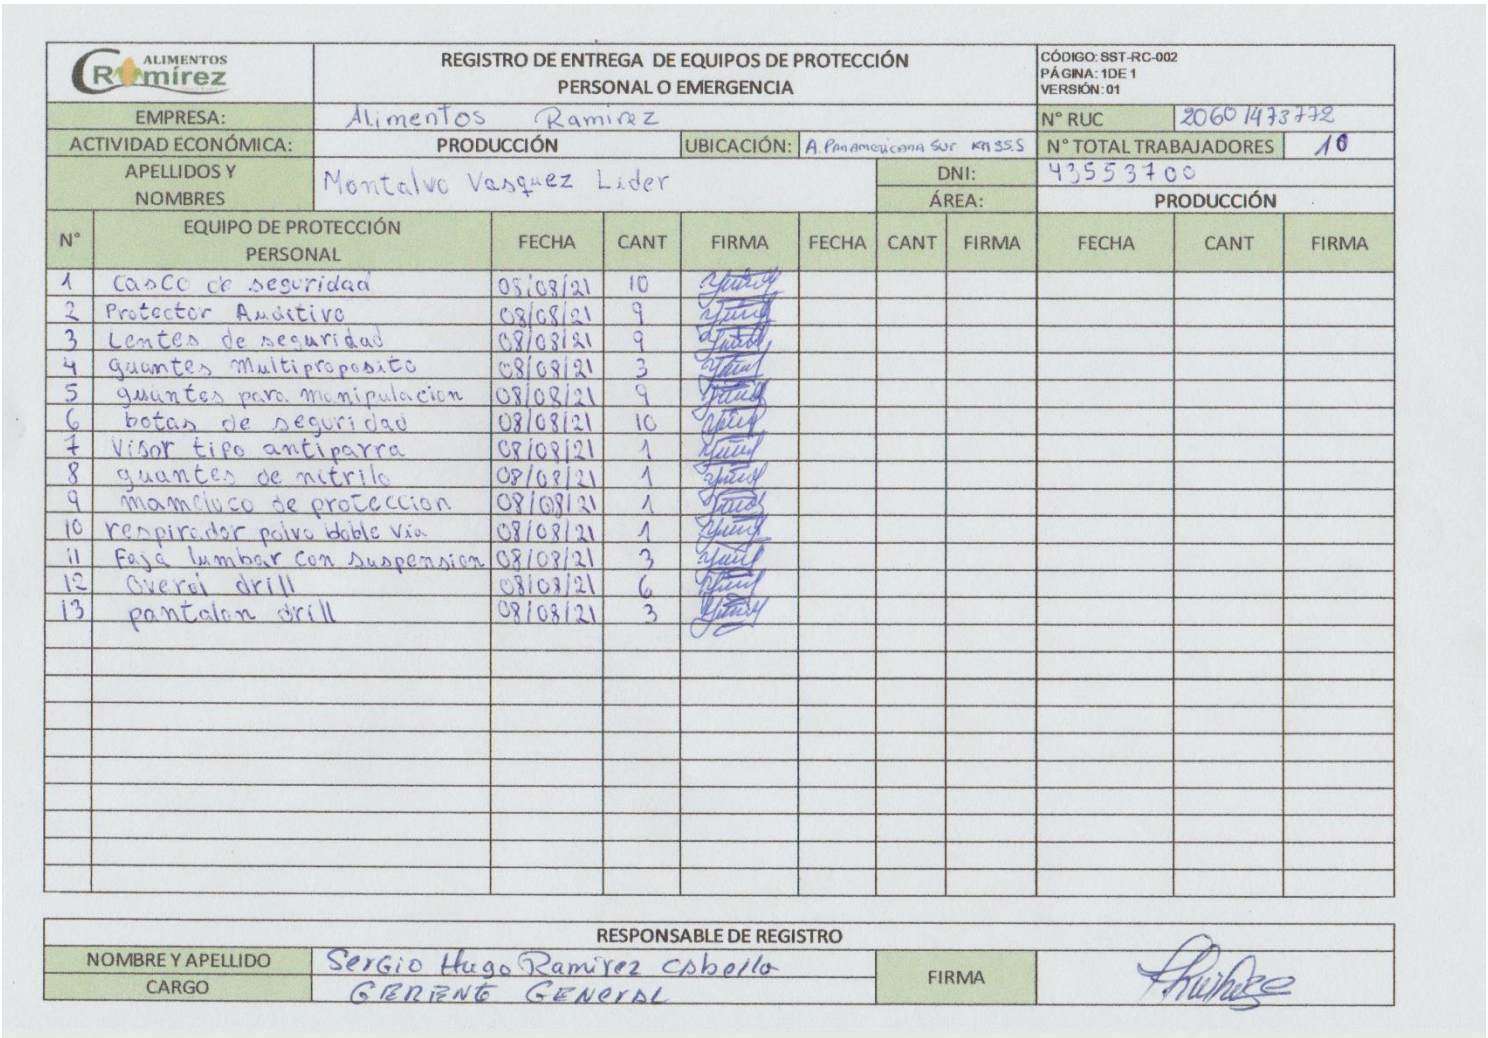 ALIMENTOS
Ramírez
REGISTRO DE ENTREGA DE EQUIPOS DE PROTECCIÓN
PERSONAL O EMERGENCIA
CÓDIGO: SST-RC-002
PÁGINA: 1DE 1
VERSIÓN: 01
EMPRESA: Alimentos Ramirez N° RUC 20601473772
ACTIVIDAD ECONÓMICA: PRODUCCIÓN UBICACIÓN: A. Panamericana Sur KM 35.5 N° TOTAL TRABAJADORES 10
APELLIDOS Y NOMBRES Montalvo Vasquez Lider DNI: 43553700
ÁREA: PRODUCCIÓN
N° EQUIPO DE PROTECCIÓN PERSONAL FECHA CANT FIRMA FECHA CANT FIRMA FECHA CANT FIRMA
1 Casco de seguridad 08/08/21 10
2 Protector Auditivo 08/08/21 9
3 Lentes de seguridad 08/08/21 9
4 guantes Multiproposito 08/08/21 3
5 guantes para manipulacion 08/08/21 9
6 botas de seguridad 08/08/21 10
7 Visor tipo antiparra 08/08/21 1
8 guantes de nitrilo 08/08/21 1
9 mameluco de proteccion 08/08/21 1
10 respirador polvo doble via 08/08/21 1
11 Faja lumbar con suspension 08/08/21 3
12 Overol drill 08/08/21 6
13 pantalon drill 08/08/21 3
RESPONSABLE DE REGISTRO
NOMBRE Y APELLIDO Sergio Hugo Ramirez Cabello
CARGO GERENTE GENERAL
FIRMA